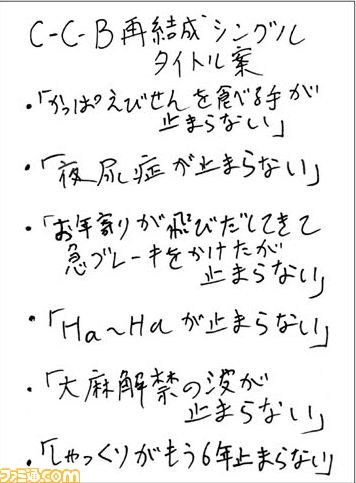 C-C-B再結成シングル
タイトル案
・「かっぱえびせんを食べる手が
止まらない」
・「夜尿症が止まらない」
・「お年寄りが飛びだしてきて
急ブレーキをかけたが
止まらない」
・「Ha～Haが止まらない」
・「大麻解禁の波が
止まらない」
・「しゃっくりがもう6年止まらない」
ファミ通.com